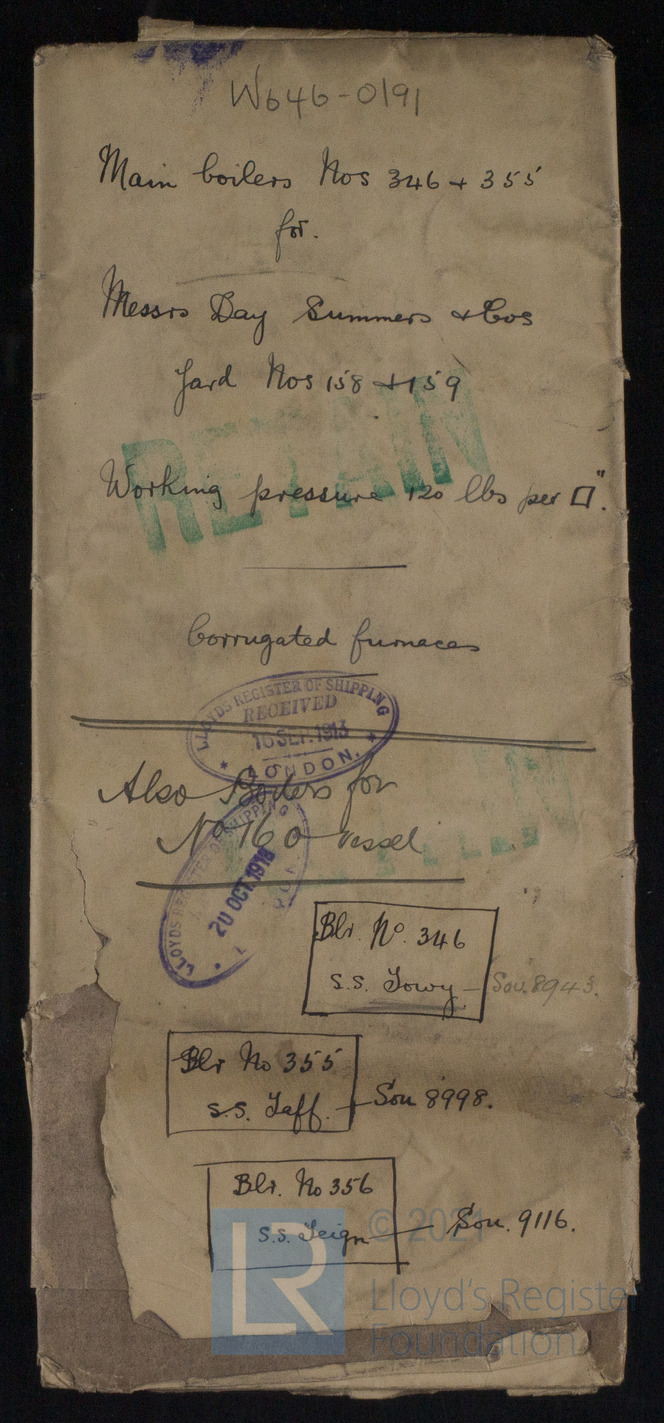 W646-0191
Main boilers Nos 346 + 355
for.
Messrs Day Summers & Cos
Yard Nos 158 + 159
RETAIN
Working pressure 120 lbs per □".
Corrugated furnaces
LLOYDS REGISTER OF SHIPPING
RECEIVED
10 SEP. 1913
LONDON.
Also Boilers for
No 160 vessel
LLOYDS REGISTER OF SHIPPING
20 OCT. 1913
Blr. No. 346
s.s. Towy - Sou. 8943.
Blr No 355
s.s. Taff. - Sou 8998.
Blr. No 356
s.s. Teign - Sou. 9116.
© 2021
LR
Lloyd's Register
Foundation